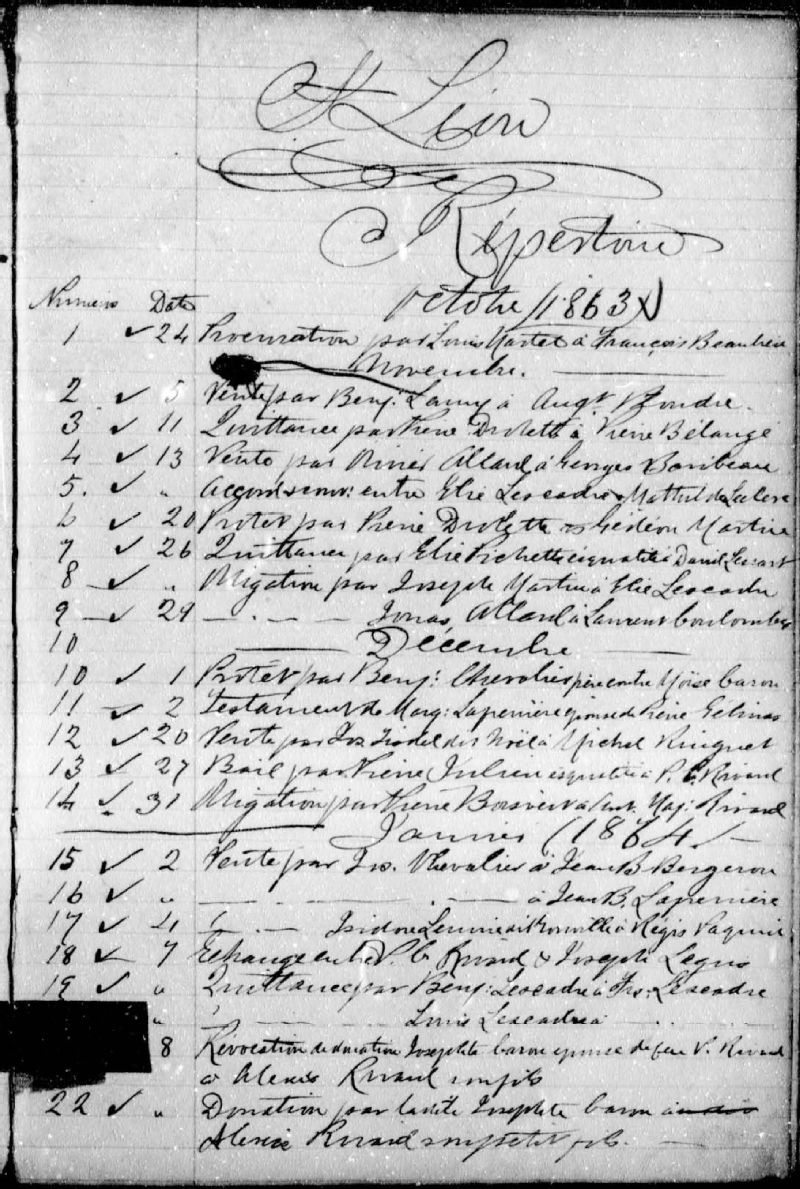 St Léon
Répertoire
Numéros Date Octobre /1863
1 24 Procuration par Louis Martel à François Beaulieu
Novembre.
2 5 Vente par Benj. Lamy à Augt
3 11 Quittance par Pierre Drolette à Pierre Bélangé
4 13 Vente par Olivier Allard à Georges Baribeau
5. " Accord & conv: entre Elie Lescadre &
6 20 Protêt par Pierre Drolette Gédéon Martin
7 26 Quittance par Elie Pichette èsqualité à David
8 " Obligation par Joseph Martin à Elie Lescadre
9 29 — . — Jonas Allard à Laurent Coulombe
10 Décembre
10 1 Protêt par Benj: Chevalier père contre Moïse Caron
11 2 Testament de Marg: Laperrière épouse de Pierre Gelinas
12 20 Vente par Jos. dit Noël à Michel Ringuet
13 27 Bail par Pierre Julien èsqualité à P. C. Rivard
14 31 Obligation par Pierre Boisvert à Ant. Maj: Rivard
Janvier (1864
15 2 Vente par Frs. Chevalier à Jean B. Bergeron
16 " — . — à Jean B. Laperrière
17 4 — . — Isidore Lemire dit Gonneville à Régis Paquin
18 7 Echange entre P. C. Rivard & Joseph Legris
19 " Quittance par Benj: Lescadre à Frs: Lescadre
" — Louis Lescadre à
8 Révocation de donation Josephte Caron épouse de feu P. Rivard
à Alexis Rivard son fils
22 " Donation par ladite Josephte Caron à
Alexis Rivard son petit fils. —